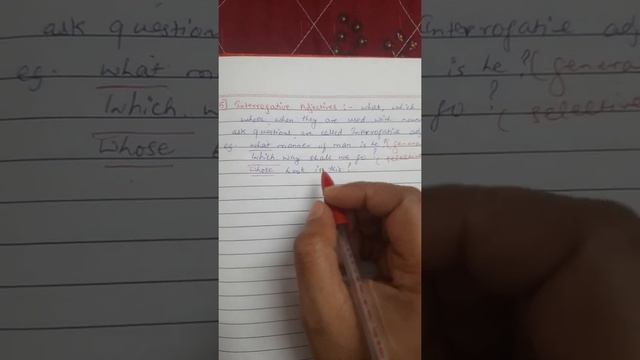 5) Interrogative Adjectives :- what, which
whose when they are used with noun
ask question are called Interrogative adj
eg. what manner of man is he? (genera
Which way shall we go? (selective
Whose book is this?